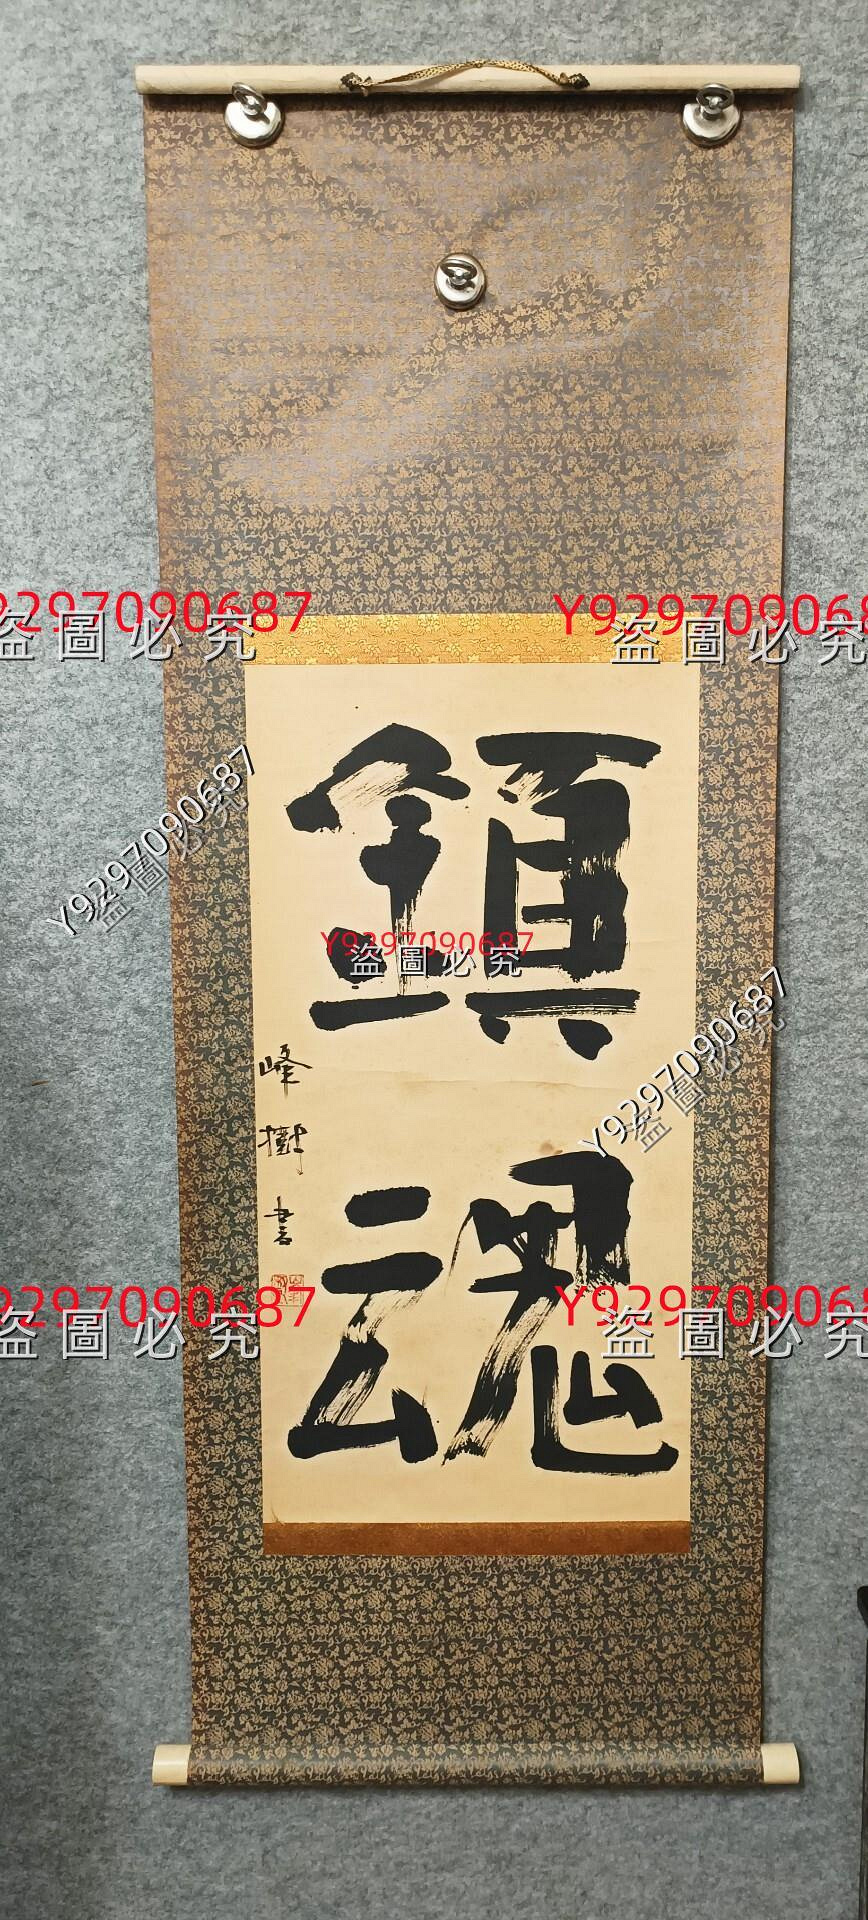 鎮
魂
峰樹書
Y9297090687
盗圖必究
Y9297090687
盗圖必究
Y9297090687
盗圖必究
Y9297090687
盗圖必究
Y9297090687
盗圖必究
Y9297090687
盗圖必究
Y9297090687
盗圖必究